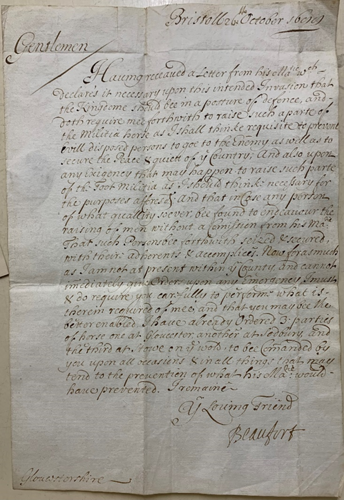 Bristoll 26th October
Gentlemen
Having receaved a Letter from his Matie wch
Declares it necessary upon this intended Invasion that
the Kingdome should bee in a posture of defence, and
doth require me forthwith to raise such a parte of
the Militia horse as I shall thinke requisite to prevent
evill disposed persons to goe to the Enemy as well as to
secure the Peace & quiett of ye Country, And also upon
any Exigency that may happen to raise such parte
of the Foot Militia as I should thinke necessary for
the purposes aforesd And that in Case any person
of what quallity soever, bee found to endeavour the
raising of men without a Comission from his Matie
That such Persons be forthwith seized & secured
with theire adherents & accomplices Now forasmuch
as I am not at present within ye County and cannot
imediately give Orders upon any Emergency I must
& do require you carefully to performe what is
herein required of mee, and that you may bee the
better enabled I have already Ordered 3 parties
of horse one at Glocester another at Sedbury, and
the third at Stowe on ye Would to bee Comanded by
you upon all occasions & in all things that may
tend to the prevention of what his Matie would
have prevented. I remaine
Yr Loving Friend
Beaufort
Gloucestershire